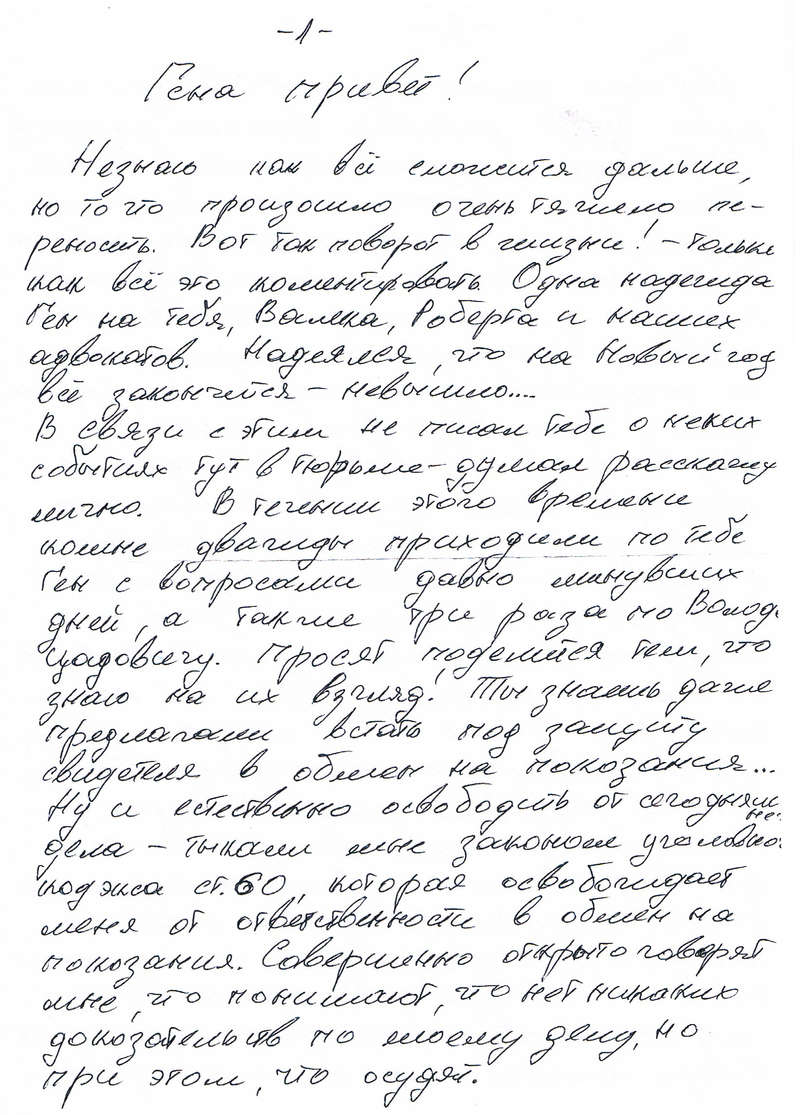 -1-
Гена привет!
Незнаю как всё сложится дальше,
но то что произошло очень тяжело пе-
реносить. Вот так поворот в жизни! - только
как всё это коментировать. Одна надежда
Ген на тебя, Валека, Роберта и наших
адвокатов. Надеялся, что на Новый год
всё закончится - невышло....
В связи с этим не писал тебе о неких
событиях тут в тюрьме - думал расскажу
лично. В течении этого времени
комне дважды приходили по тебе
Ген с вопросами давно минувших
дней, а также три раза по Володе
Щадовичу. Просят поделится тем, что
знаю на их взгляд! Ты знаешь даже
предлагали встать под защиту
свидетеля в обмен на показания...
Ну и естественно освободить от сегодняш
него
дела - тыкали мне законом уголовно
кодэкса ст. 60, которая освобождает
меня от ответственности в обмен на
показания. Совершенно открыто говорят
мне, что понимают, что нет никаких
доказательств по моему делу, но
при этом, что осудят.